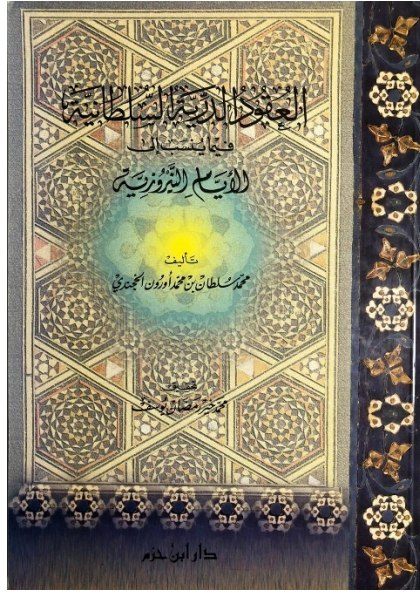 العُقُودُ الدُّرِّيَّةُ السُّلْطَانِيَّةُ
فِيمَا يُنْسَبُ إِلَى
الأَيَّامِ النَّيْرُوزِيَّةِ
تَأليف
محمد سُلطان بن محمد أورون الخجندي
تحقيق
محمد خير رمضان يوسف
دار ابن حزم